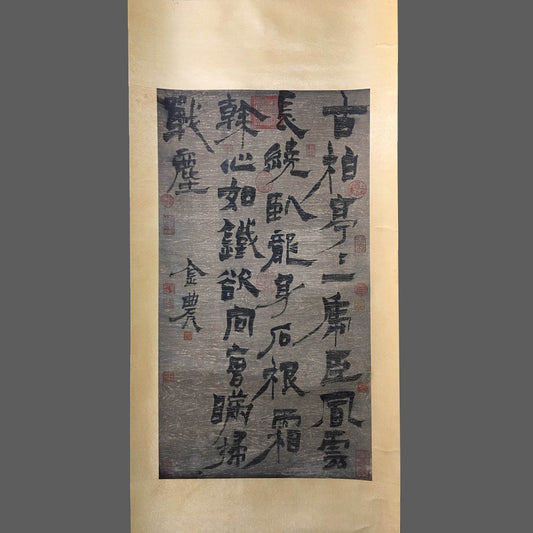 古柏亭〻一虎臣風雲
長繞臥龍身石根霜
榦心如鐵欲向曹瞞掃
戰塵
金農